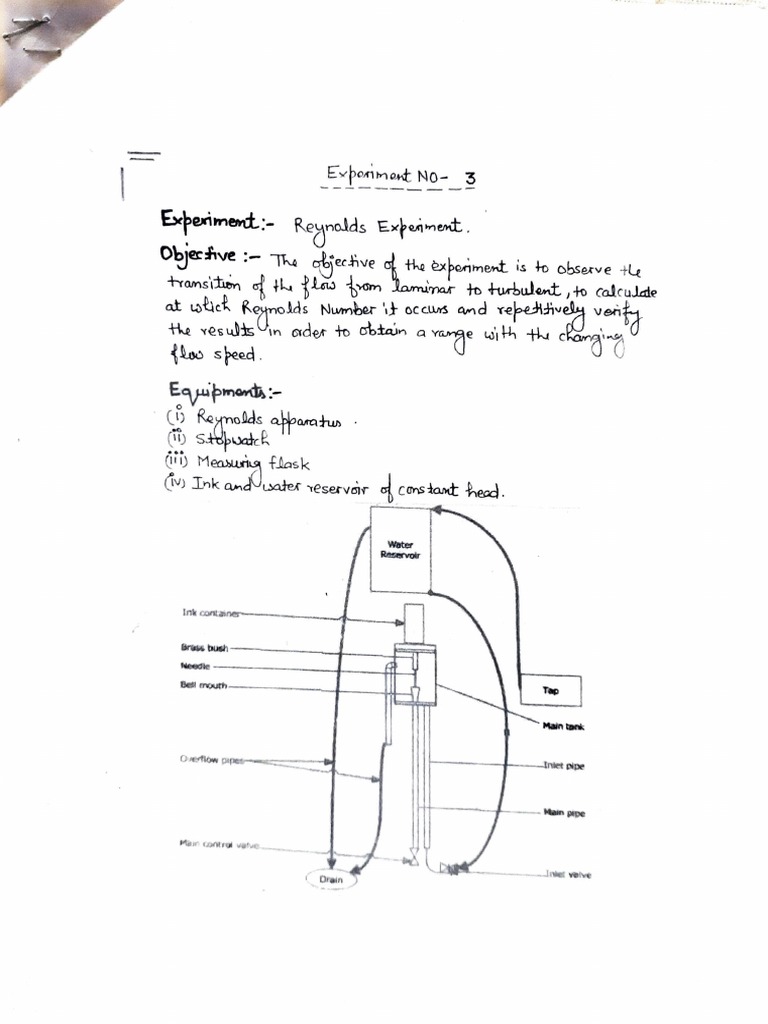 Experiment NO- 3
Experiment:- Reynolds Experiment.
Objective :- The objective of the experiment is to observe the
transition of the flow from laminar to turbulent, to calculate
at which Reynolds Number it occurs and repetitively verify
the results in order to obtain a range with the changing
flow speed.
Equipments:-
(i) Reynolds apparatus.
(ii) Stopwatch
(iii) Measuring flask
(iv) Ink and water reservoir of constant head.
Water
Reservoir
Ink container
Brass bush
Needle
Bell mouth
Tap
Main tank
Overflow pipes
Inlet pipe
Main pipe
Main control valve
Inlet valve
Drain